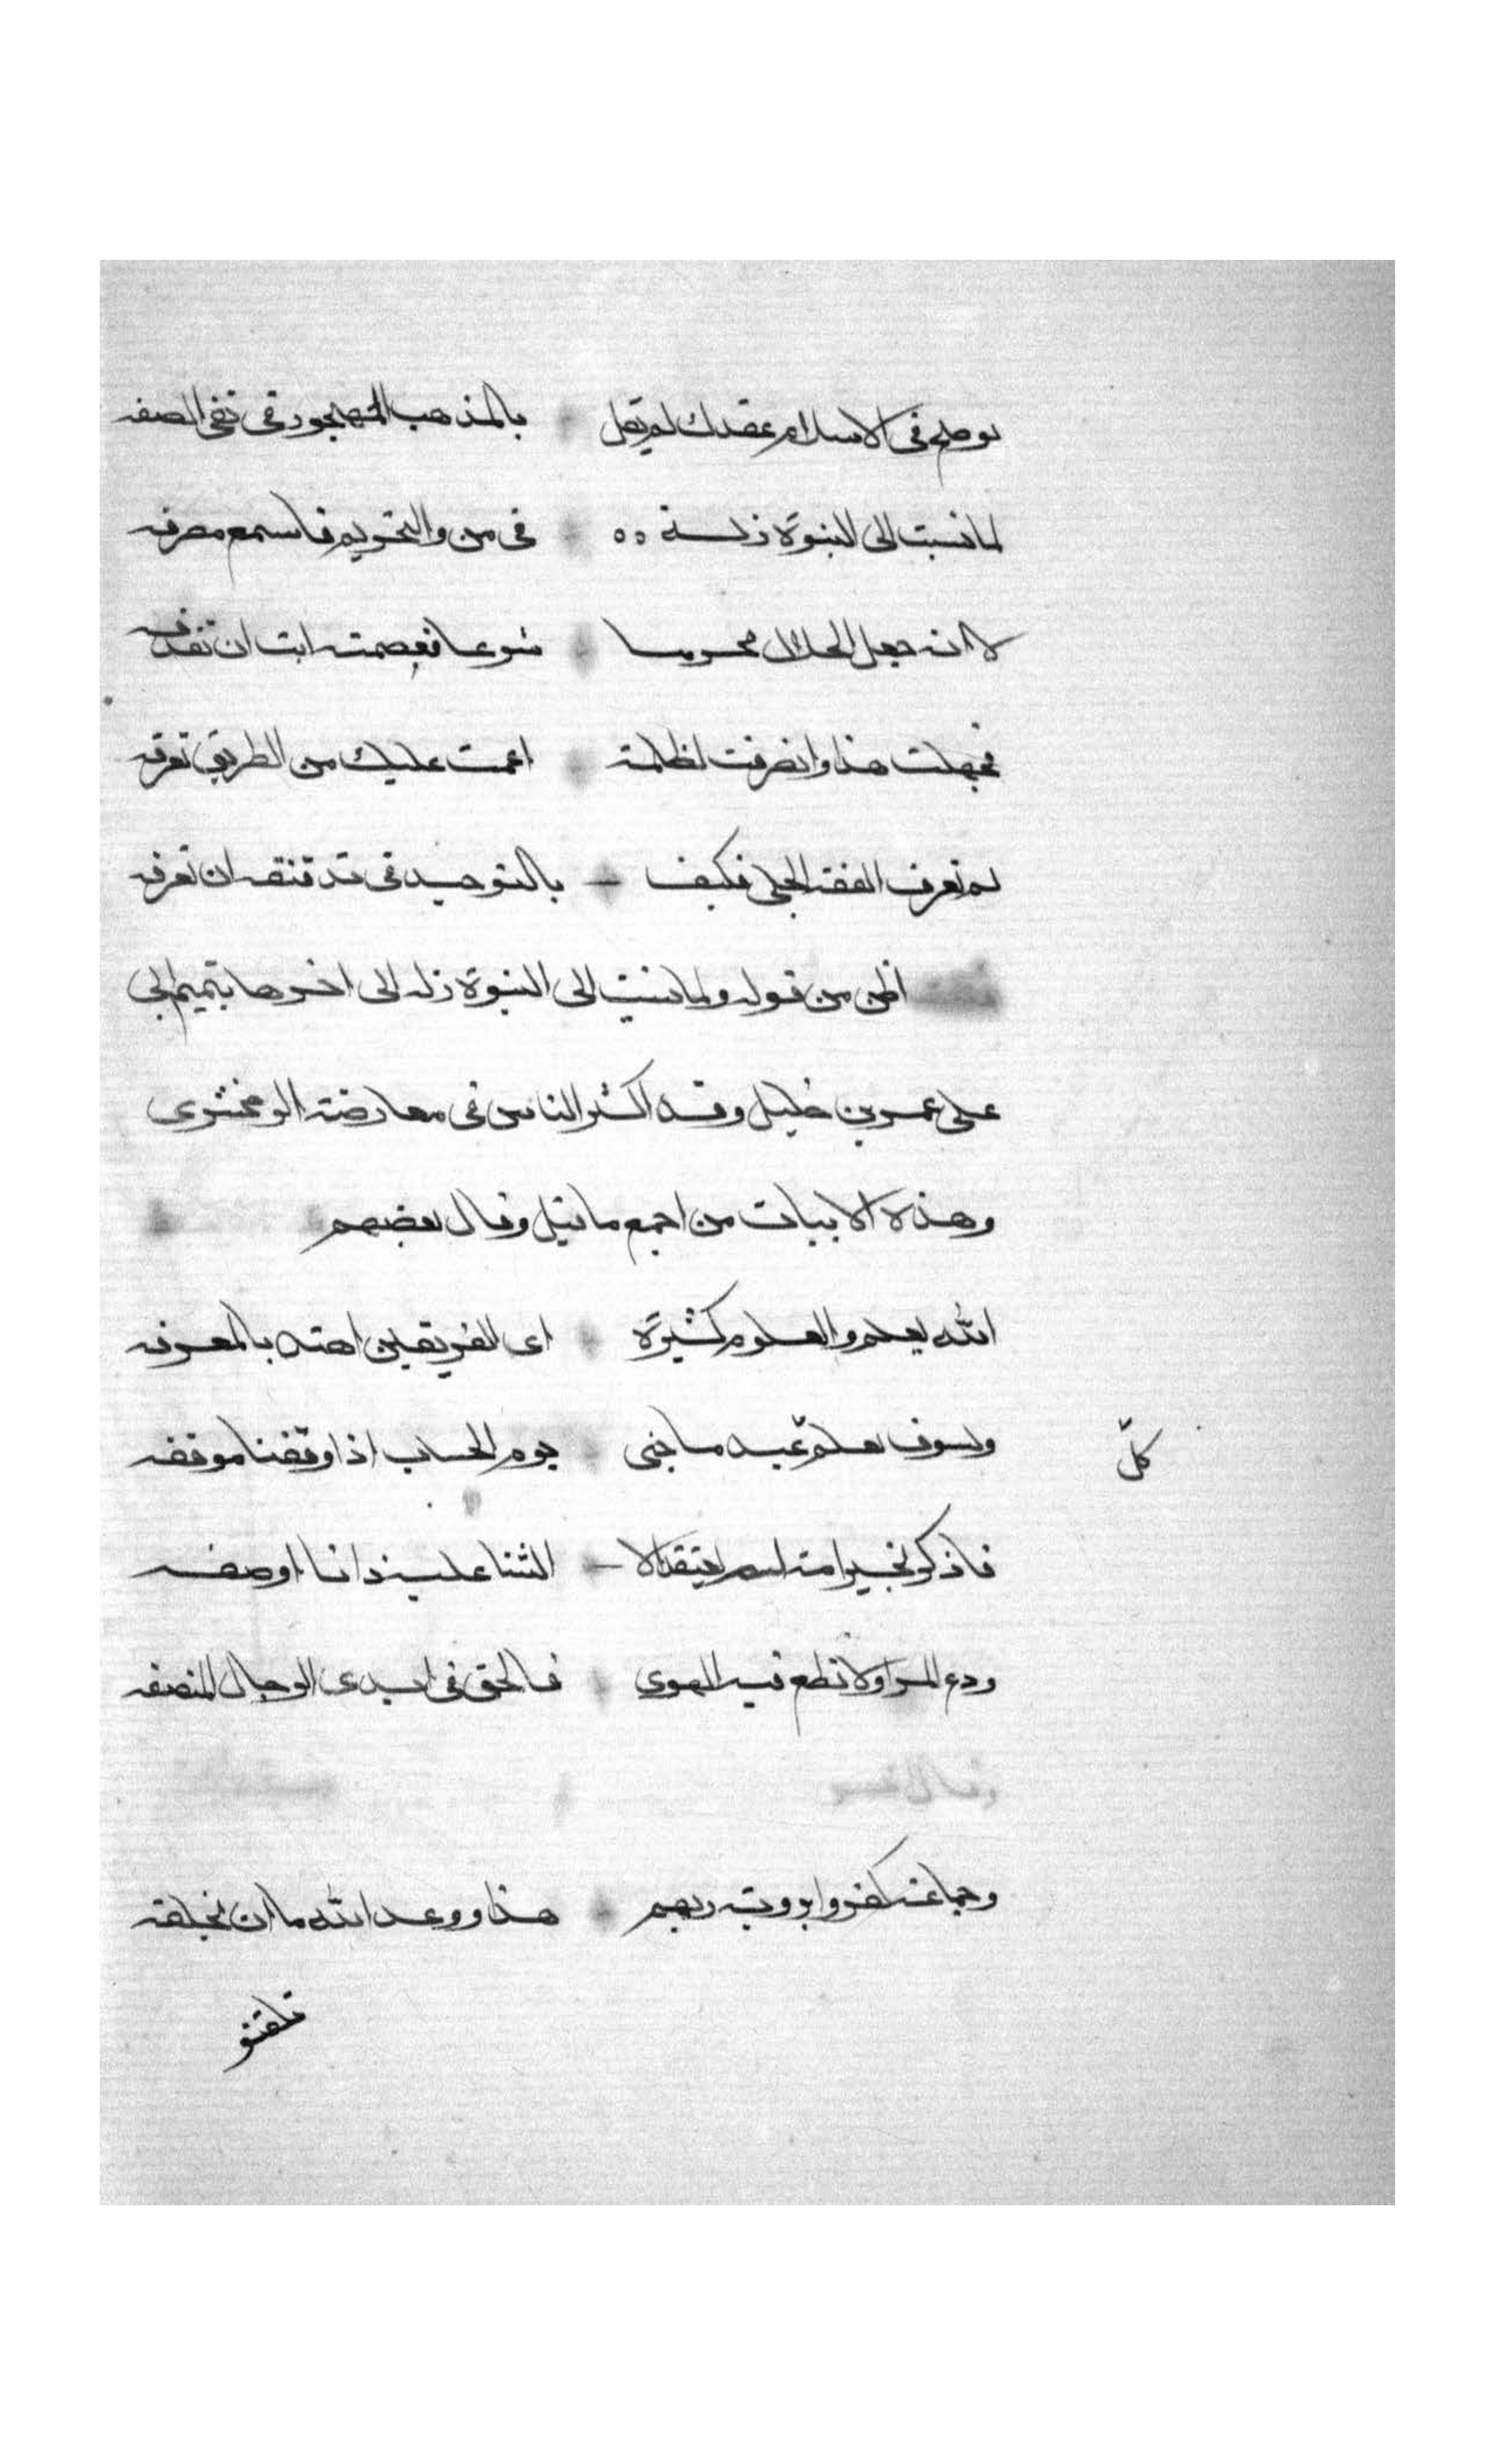 لوصح في الاسلام عقدك لم تقل بالمذهب المهجور في نفي الصفه
لما نسبت الى النبوة زلة في من والتحريم فاسمع مصرفه
لا انه جعل الحلال محرما شرعا فعصمته ابت ان تقذفه
فجهلت هذا وانصرفت لظلمة اعمت عليك من الطريق تعرفه
لم تعرف الفقه الجلي فكيف بالتوحيد في تدقيقه ان تعرفه
اظن من قوله ولما نسبت الى النبوة زله الى اخرها تتميم لبي
على عمر بن خليل وقد اكثر الناس في معارضة الزمخشري
وهذه الابيات من اجمع ما قيل وقال بعضهم
الله يعلم والعلوم كثيرة اى الفريقين اهتدى بالمعرفه
ولسوف يعلم عبد ما جنى يوم الحساب اذا وقفنا موقفه
كل
فاذكر بخير امة لم يعتقد الا الثنا عليه ذاتا او صفه
ودع المرا ولا تطع فيه الهوى فالحق في ايدى الرجال المنصفه
وقال اخر
وجماعة كفروا بروية ربهم هذا ووعد الله ما ان يخلفه
وتلقبو